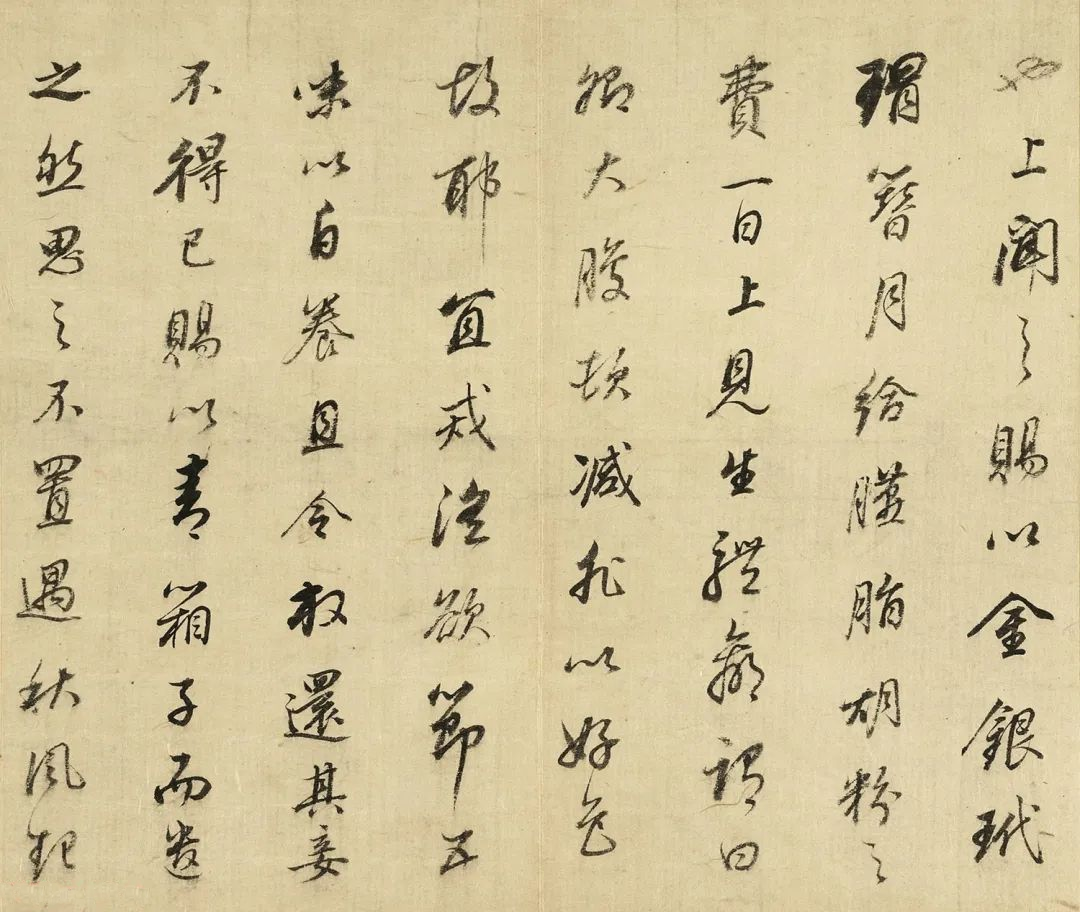 也上闻之賜以金銀玳
瑁簪月給臙脂胡粉之
費一日上見生體羸謂曰
卿大腹頓減非以好色
故耶宜戒淫欲節五
味以自養且令放還其妾
不得已賜以青箱子而遣
之然思之不置遇秋風起